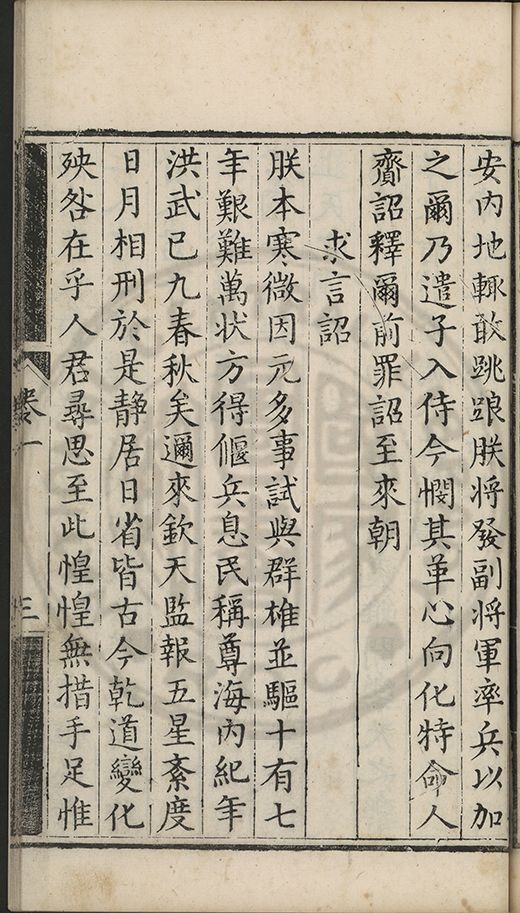 安内地輙敢跳踉朕將發副將軍率兵以加
之爾乃遣子入侍今憫其革心向化特命人
齎詔釋爾前罪詔至來朝
求言詔
朕本寒微因元多事試與群雄並驅十有七
年艱難萬狀方得偃兵息民稱尊海内紀年
洪武已九春秋矣邇來欽天監報五星紊度
日月相刑於是静居日省皆古今乾道變化
殃咎在乎人君尋思至此惶惶無措手足惟
卷一
三